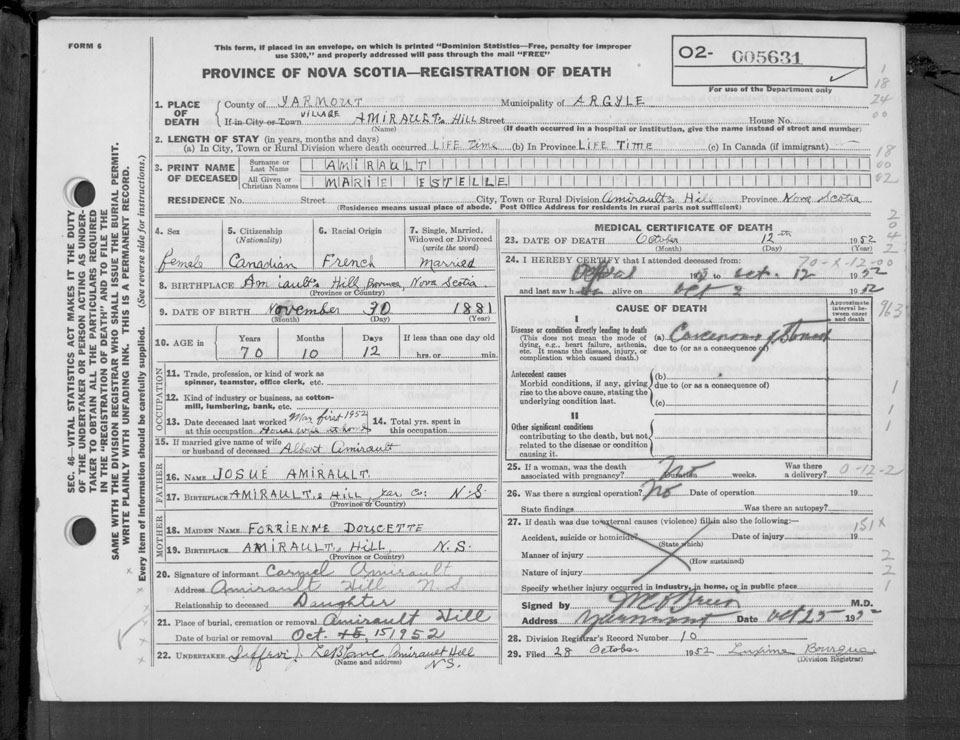 FORM 6
This form, if placed in an envelope, on which is printed "Dominion Statistics—Free, penalty for improper
use $300," and properly addressed will pass through the mail "FREE"
PROVINCE OF NOVA SCOTIA—REGISTRATION OF DEATH
O2- 005631
For use of the Department only
1. PLACE OF DEATH
County of YARMOUT Municipality of ARGYLE
If in City or Town VILLAGE AMIRAULTs HILL Street House No.
(Name) (If death occurred in a hospital or institution, give the name instead of street and number)
2. LENGTH OF STAY (in years, months and days)
(a) In City, Town or Rural Division where death occurred LIFE TIME (b) In Province LIFE TIME (c) In Canada (if immigrant)
3. PRINT NAME OF DECEASED
Surname or Last Name AMIRAULT
All Given or Christian Names MARIE ESTELLE
RESIDENCE No. Street City, Town or Rural Division Amirault's Hill Province Nova Scotia
(Residence means usual place of abode. Post Office Address for residents in rural parts not sufficient)
4. Sex female
5. Citizenship (Nationality) Canadian
6. Racial Origin French
7. Single, Married, Widowed or Divorced (write the word) Married
8. BIRTHPLACE Hill, Nova Scotia
(Province or Country)
9. DATE OF BIRTH November 30 1881
(Month) (Day) (Year)
10. AGE in Years 70 Months 10 Days 12 If less than one day old hrs. or min.
OCCUPATION
11. Trade, profession, or kind of work as spinner, teamster, office clerk, etc.
12. Kind of industry or business, as cotton-mill, lumbering, bank, etc.
13. Date deceased last worked at this occupation Mar first 1952 House wife at home
14. Total yrs. spent in this occupation
15. If married give name of wife or husband of deceased Albert Amirault
FATHER
16. NAME JOSUÉ AMIRAULT
17. BIRTHPLACE AMIRAULTs HILL Yar Co: N.S.
(Province or Country)
MOTHER
18. MAIDEN NAME FORRIENNE DOUCETTE
19. BIRTHPLACE AMIRAULTs HILL N.S.
(Province or Country)
20. Signature of informant Carmel Amirault
Address Amirault Hill N S
Relationship to deceased Daughter
21. Place of burial, cremation or removal Amirault Hill
Date of burial or removal Oct. 15 1952
22. UNDERTAKER LeBlanc Amirault Hill
(Name and address) N.S.
MEDICAL CERTIFICATE OF DEATH
23. DATE OF DEATH October 12th 1952
(Month) (Day) (Year)
24. I HEREBY CERTIFY that I attended deceased from:
to Oct. 12 1952
and last saw h alive on Oct 2 1952
CAUSE OF DEATH
Approximate interval between onset and death
I
Disease or condition directly leading to death
(This does not mean the mode of dying, e.g., heart failure, asthenia, etc. It means the disease, injury, or complication which caused death.)
(a) Carcinoma of Stomach
due to (or as a consequence of)
Antecedent causes
Morbid conditions, if any, giving rise to the above cause, stating the underlying condition last.
(b)
due to (or as a consequence of)
(c)
II
Other significant conditions
contributing to the death, but not related to the disease or condition causing it.
25. If a woman, was the death associated with pregnancy? No Duration weeks. Was there a delivery?
26. Was there a surgical operation? No Date of operation 19
State findings Was there an autopsy?
27. If death was due to external causes (violence) fill in also the following:
Accident, suicide or homicide? (State which) Date of injury 19
Manner of injury
(How sustained)
Nature of injury
Specify whether injury occurred in industry, in home, or in public place
Signed by M.D.
Address Yarmouth Date Oct 25 1952
28. Division Registrar's Record Number 10
29. Filed 28 October 1952 Bourque
(Division Registrar)
SEC. 46—VITAL STATISTICS ACT MAKES IT THE DUTY
OF THE UNDERTAKER OR PERSON ACTING AS UNDER-
TAKER TO OBTAIN ALL THE PARTICULARS REQUIRED
IN THE "REGISTRATION OF DEATH" AND TO FILE THE
SAME WITH THE DIVISION REGISTRAR WHO SHALL ISSUE THE BURIAL PERMIT.
WRITE PLAINLY WITH UNFADING INK. THIS IS A PERMANENT RECORD.
Every item of information should be carefully supplied. (See reverse side for instructions.)
1
18
24
00
18
00
02
2
0
4
2
70-X-12-00
963
1
1
1
0-12-2
151X
2
2
1